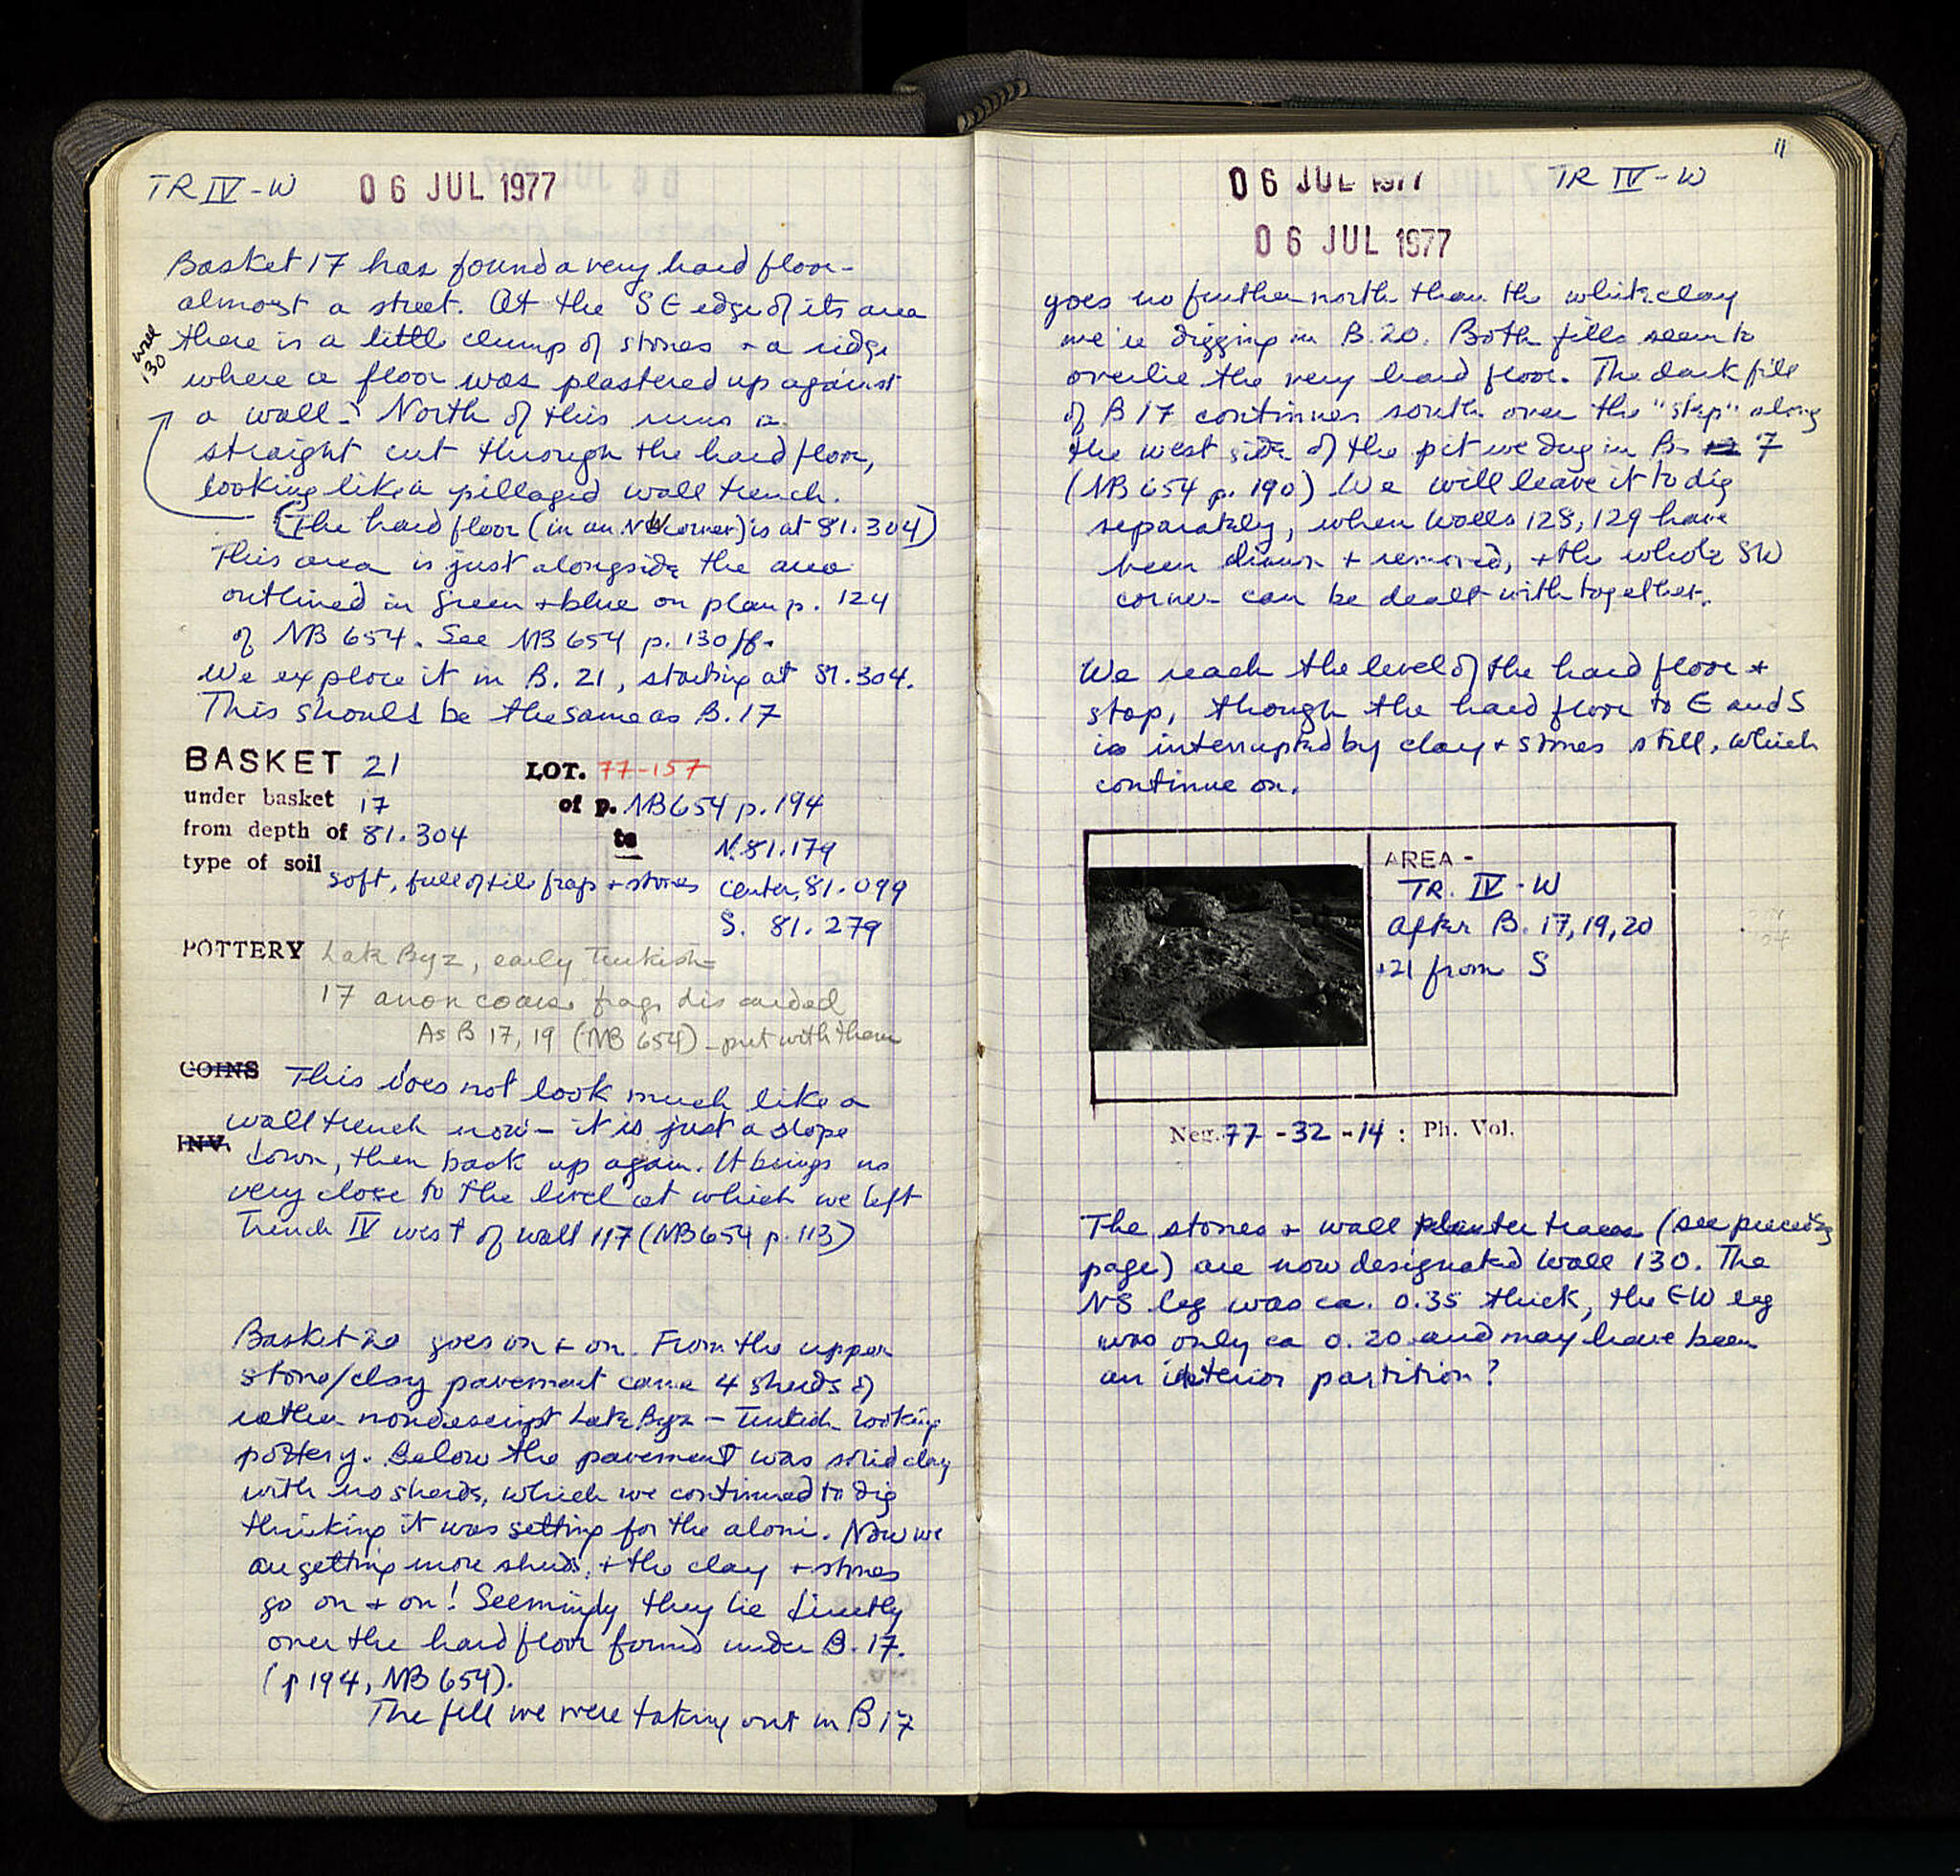 TR IV - W 06 JUL 1977
Basket 17 has found a very hard floor -
almost a street. At the SE edge of its area
wall 130
there is a little clump of stones + a ridge
where a floor was plastered up against
a wall. North of this runs a
straight cut through the hard floor,
looking like a pillaged wall trench.
(The hard floor (in our NW corner) is at 81.304)
This area is just alongside the area
outlined in green + blue on plan p. 124
of NB 654. See NB 654 p. 130 ff.
We explore it in B. 21, starting at 81.304.
This should be the same as B. 17
BASKET 21 LOT. 77-157
under basket 17 of p. NB 654 p. 194
from depth of 81.304 to N. 81.179
type of soil soft, full of tile frags + stones center, 81.099
S. 81.279
POTTERY Late Byz, early Turkish
17 anon coarse frags discarded
As B 17, 19 (NB 654) - put with them
COINS This does not look much like a
wall trench now - it is just a slope
INV. down, then back up again. It brings us
very close to the level at which we left
Trench IV west of wall 117 (NB 654 p. 113)
Basket 20 goes on + on. From the upper
stone/clay pavement came 4 sherds of
rather nondescript Late Byz - Turkish looking
pottery. Below the pavement was solid clay
with no sherds, which we continued to dig
thinking it was setting for the aloni. Now we
are getting more sherds, + the clay + stones
go on + on! Seemingly they lie directly
over the hard floor found under B. 17.
(p 194, NB 654).
The fill we were taking out in B 17
11
06 JUL 1977 TR IV - W
06 JUL 1977
goes no further north than the white clay
we're digging in B. 20. Both fills seem to
overlie the very hard floor. The dark fill
of B 17 continues south over the "step" along
the west side of the pit we dug in B. 7
(NB 654 p. 190) We will leave it to dig
separately, when walls 128, 129 have
been drawn + removed, + the whole SW
corner can be dealt with together.
We reach the level of the hard floor +
stop, though the hard floor to E and S
is interrupted by clay + stones still, which
continue on.
AREA -
TR. IV - W
after B. 17, 19, 20
+21 from S
Neg. 77 - 32 - 14 : Ph. Vol.
The stones + wall plaster traces (see preceding
page) are now designated wall 130. The
NS leg was ca. 0.35 thick, the EW leg
was only ca 0.20 and may have been
an interior partition?